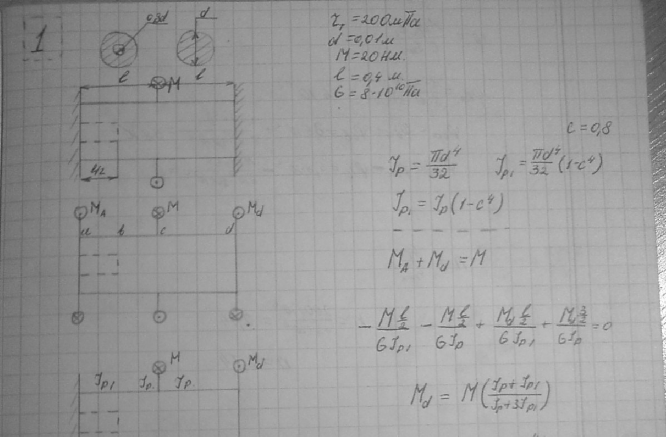 1
0,8d
d
τт = 200 мПа
d = 0,01 м
M = 20 Нм
l = 0,4 м
G = 8·10¹⁰ Па
l
M
l
c = 0,8
Jp = πd⁴/32
Jp₁ = πd⁴/32 (1-c⁴)
l/2
Jp₁ = Jp(1-c⁴)
M_A
M
M_d
a
b
c
d
M_A + M_d = M
- (M l/2)/(GJp₁) - (M l/2)/(GJp) + (M_d l/2)/(GJp₁) + = 0
M
M_d
Jp₁
Jp
Jp
M_d = M((Jp+Jp₁)/(Jp+3Jp₁))